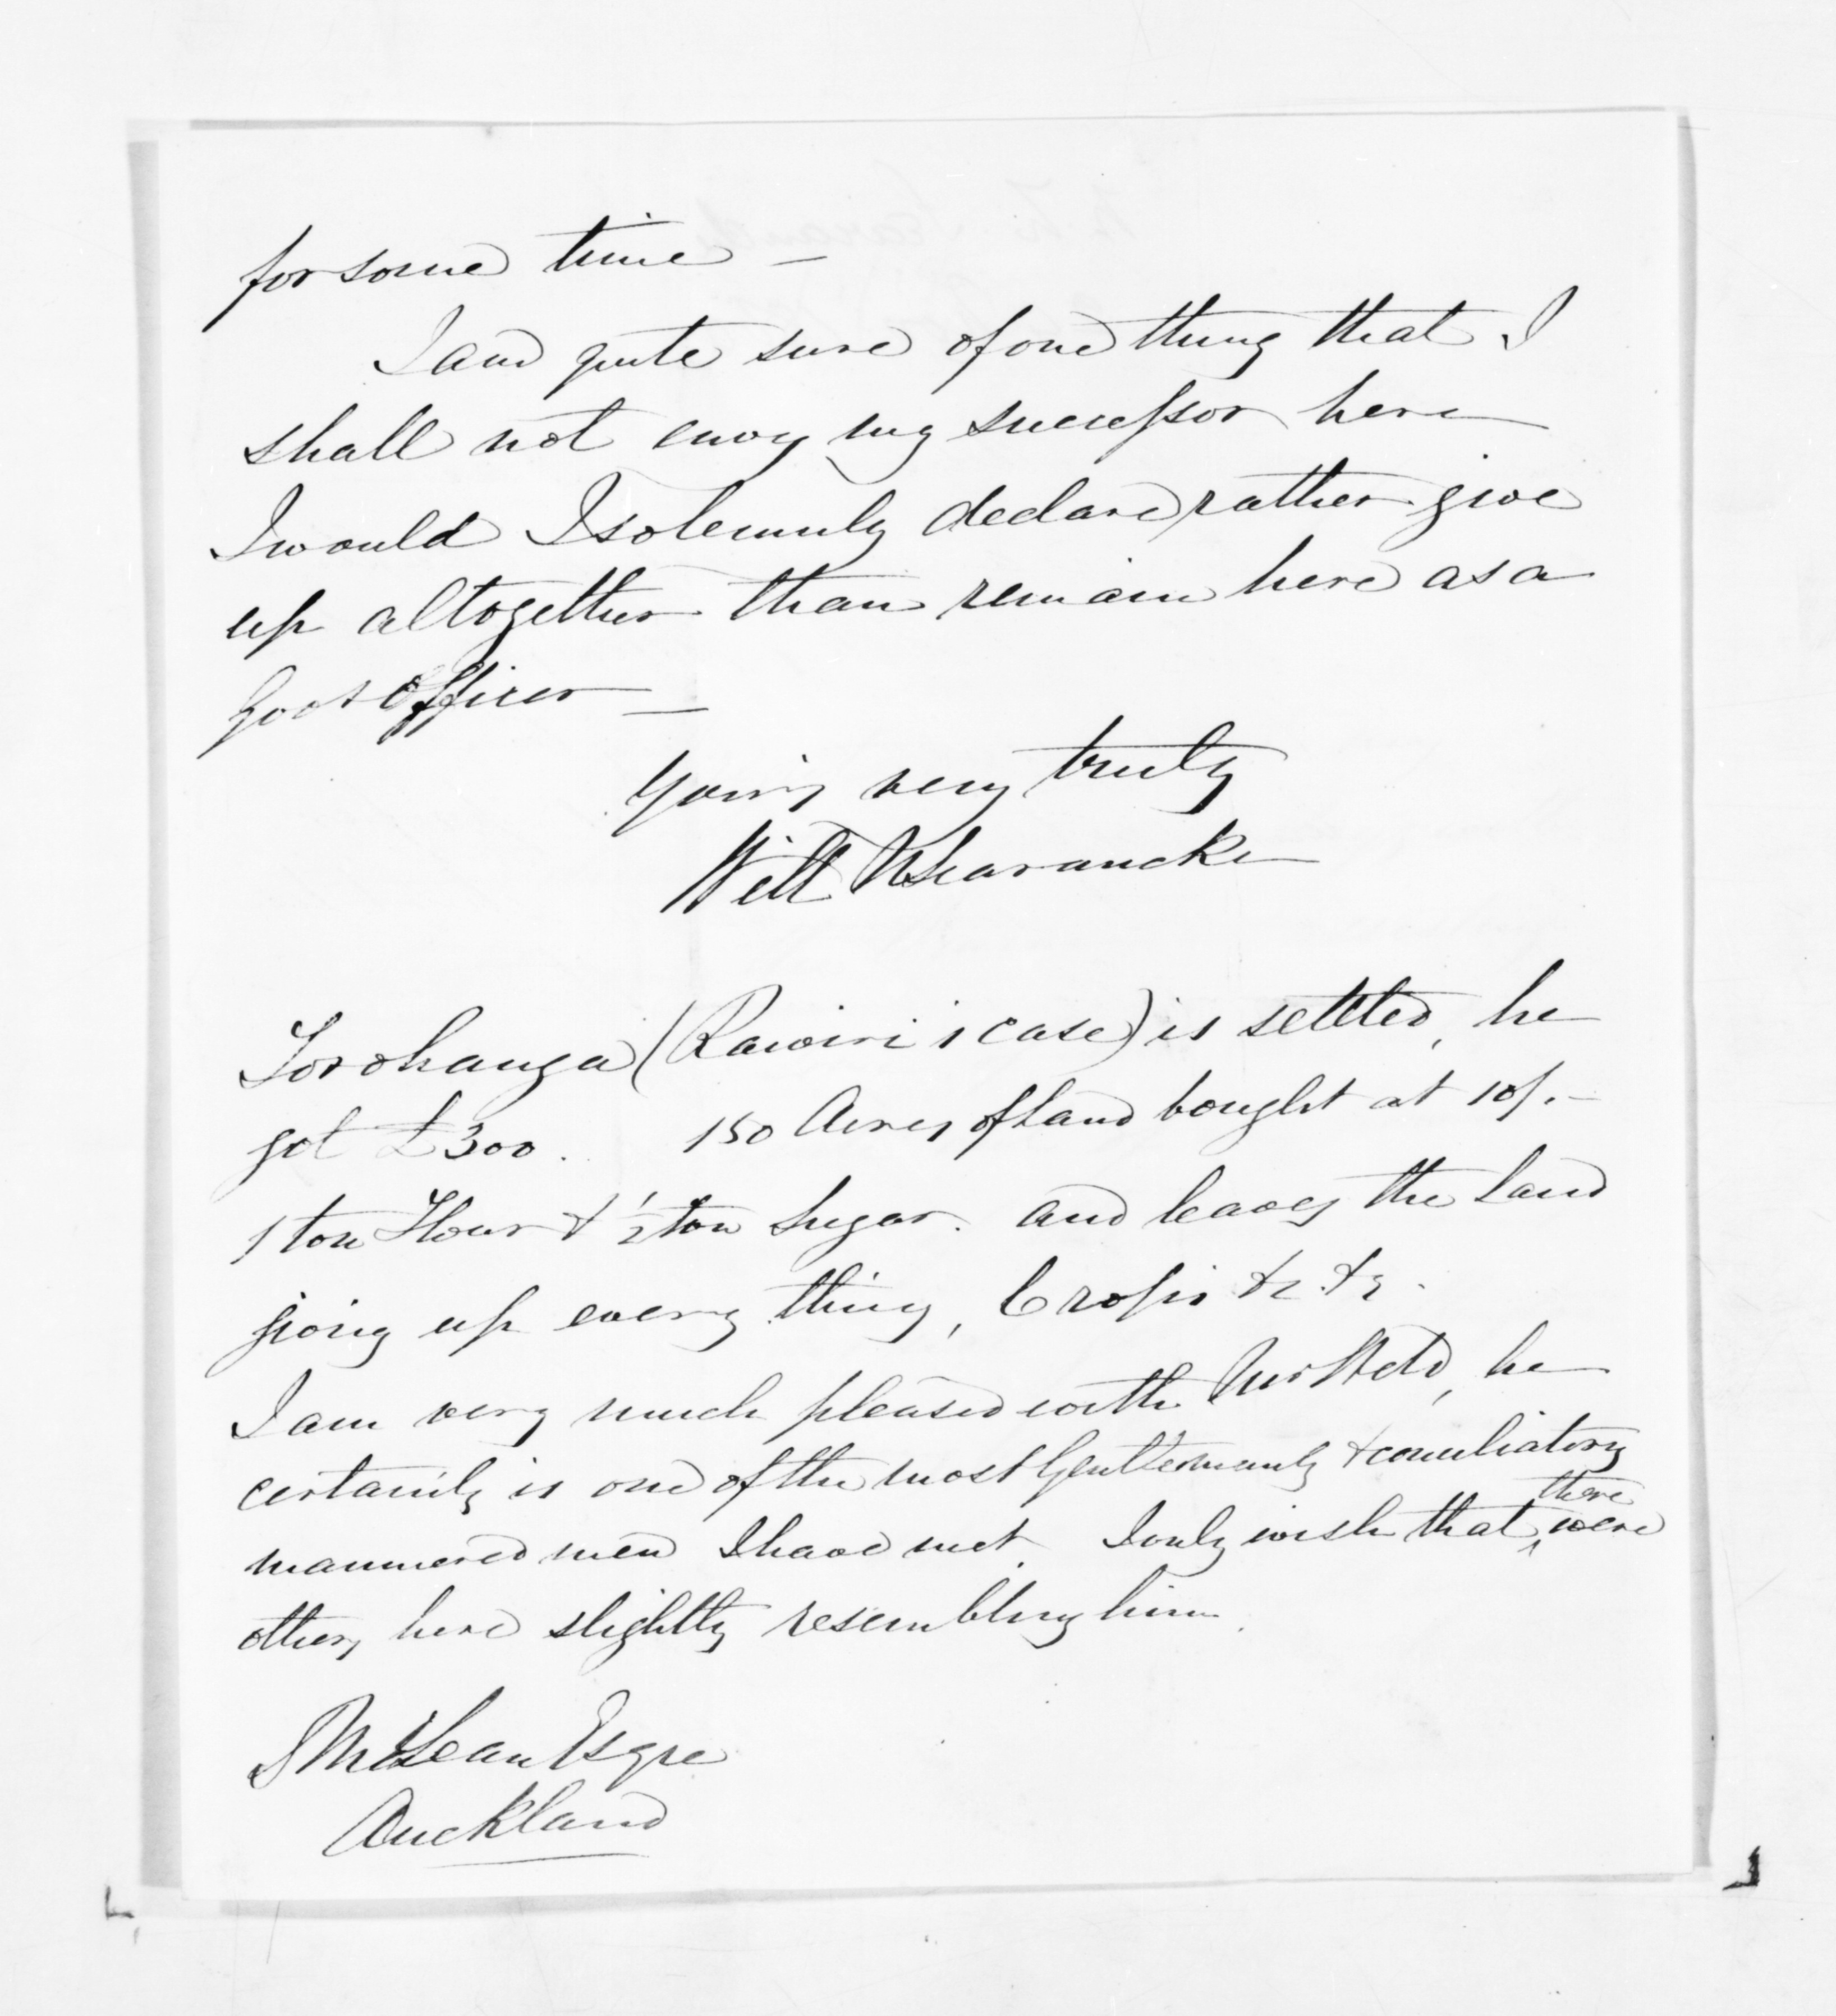 for some time —
I am quite sure of one thing that I
shall not envy my successor here
I would I solemnly declare rather give
up altogether than remain here as a
Govt Officer —
Yours very truly
Will Searancke
Torohanga (Rawiri's case) is settled, he
got £300. 150 Acres of land bought at 10/. -
1 ton Flour & 1/2 ton Sugar. and leaves the land
giving up every thing, Crops &c. &c.
I am very much pleased with Mr Weld, he
certainly is one of the most Gentlemanly & conciliatory
mannered men I have met. I only wish that there were
others here slightly resembling him.
D McLean Esqre
Auckland